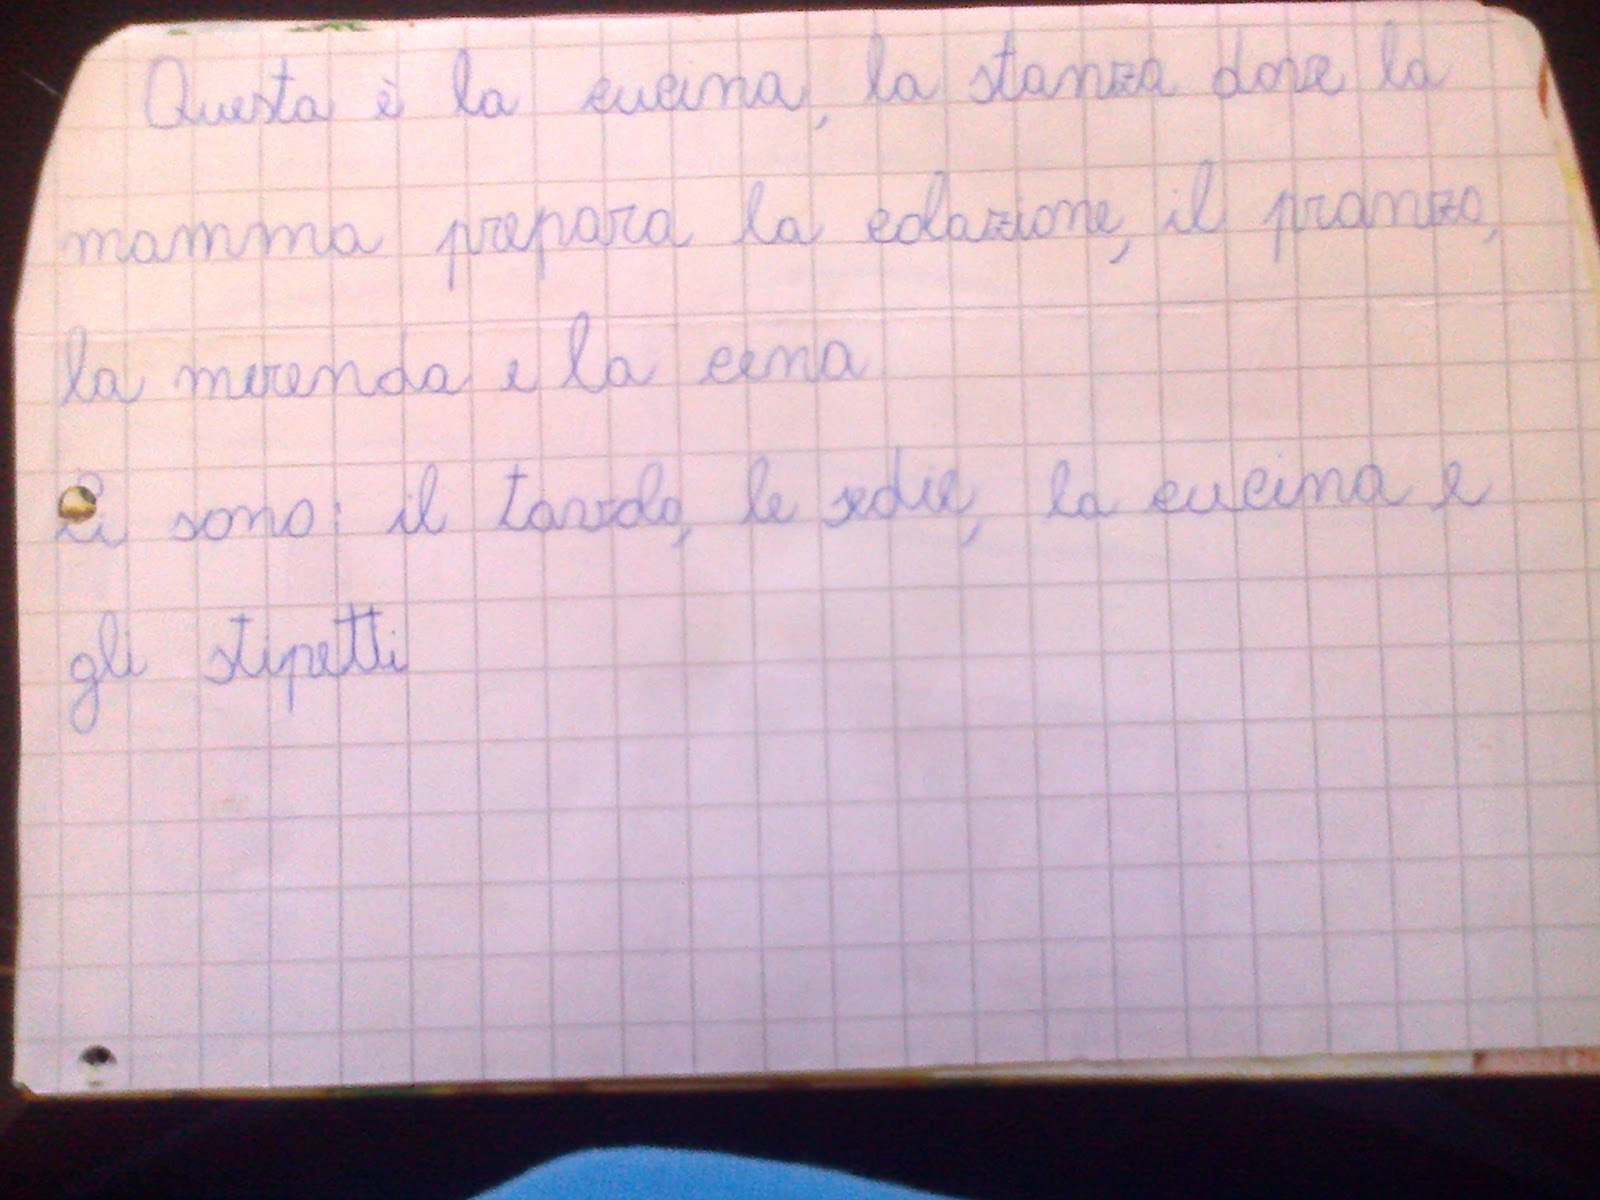 Questa è la cucina, la stanza dove la
mamma prepara la colazione, il pranzo,
la merenda e la cena
Ci sono: il tavolo, le sedie, la cucina e
gli stipetti